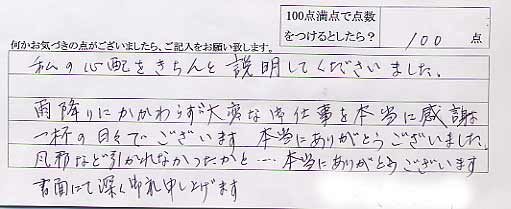 100点満点で点数
をつけるとしたら？ 100 点
何かお気づきの点がございましたら、ご記入をお願い致します。
私の心配をきちんと説明してくださいました。
雨降りにかかわらず大変な御仕事を本当に感謝
一杯の日々でございます 本当にありがとうございました。
風邪など引かれなかったかと…本当にありがとうございます
書面にて深く御礼申し上げます